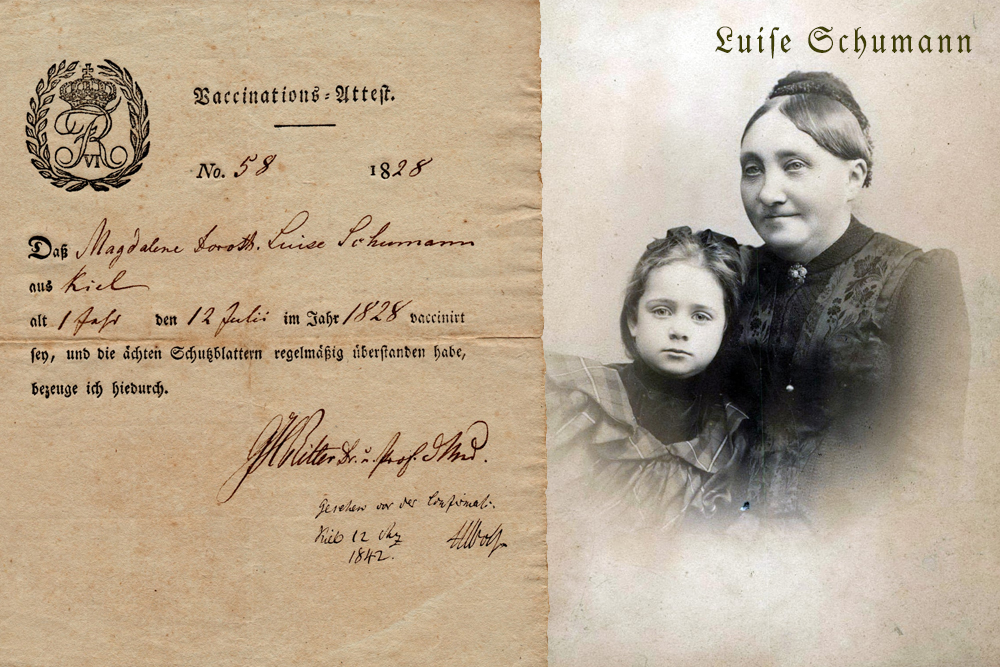 Luise Schumann
FR
VI
Vaccinations-Attest.
No. 58 1828
Daß Magdalene Doroth. Luise Schumann
aus Kiel
alt 1 Jahr den 12 Julii im Jahr 1828 vaccinirt
sey, und die ächten Schutzblattern regelmäßig überstanden habe,
bezeuge ich hiedurch.
Ritter Dr. u. Prof. d Med.
Gesehen vor der Confirmat.
Kiel 12
1842.